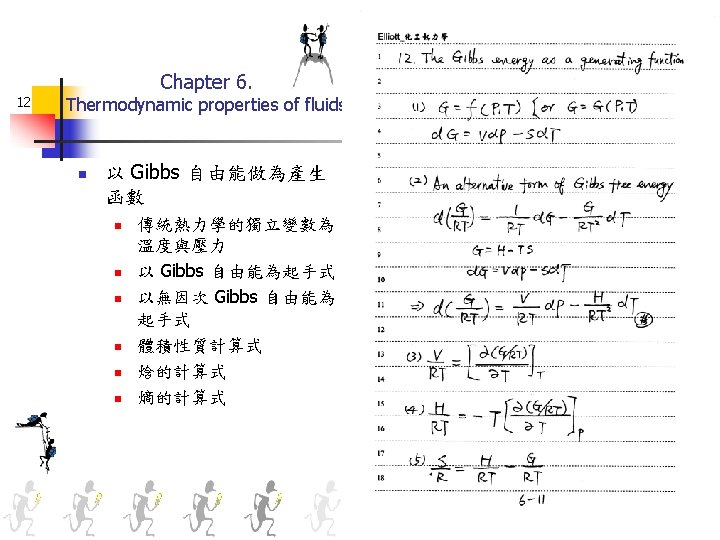 Chapter 6.
12
Thermodynamic properties of fluids
以 Gibbs 自由能做為產生
函數
傳統熱力學的獨立變數為
溫度與壓力
以 Gibbs 自由能為起手式
以無因次 Gibbs 自由能為
起手式
體積性質計算式
焓的計算式
熵的計算式
Elliott_化工熱力學
1 12. The Gibbs energy as a generating function
2
3 (1) G = f(P,T) [or G = G(P,T)
4 dG = Vdp - SdT
5
6 (2) An alternative form of Gibbs free energy
7 d(G/RT) = 1/RT dG - G/RT² dT
8
9 G = H - TS
10 dG = Vdp - SdT
11 ⇒ d(G/RT) = V/RT dp - H/RT² dT
12
13 (3) V/RT = [∂(G/RT)/∂T]T
14
15 (4) H/RT = -T[∂(G/RT)/∂T]p
16
17 (5) S/R = H/RT - G/RT
18
6-11